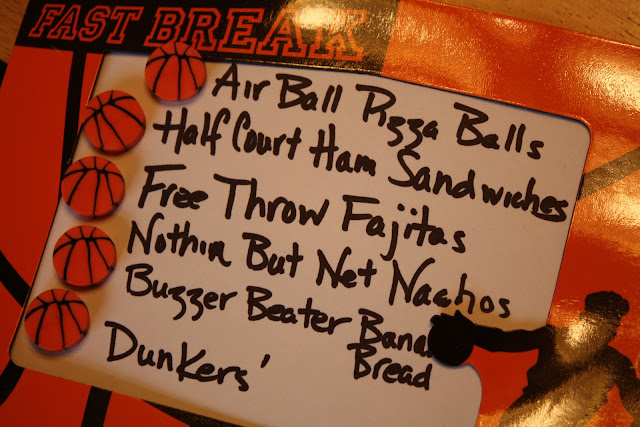 FAST BREAK
Air Ball Pizza Balls
Half Court Ham Sandwiches
Free Throw Fajitas
Nothin But Net Nachos
Buzzer Beater Bana
Bread
Dunkers'